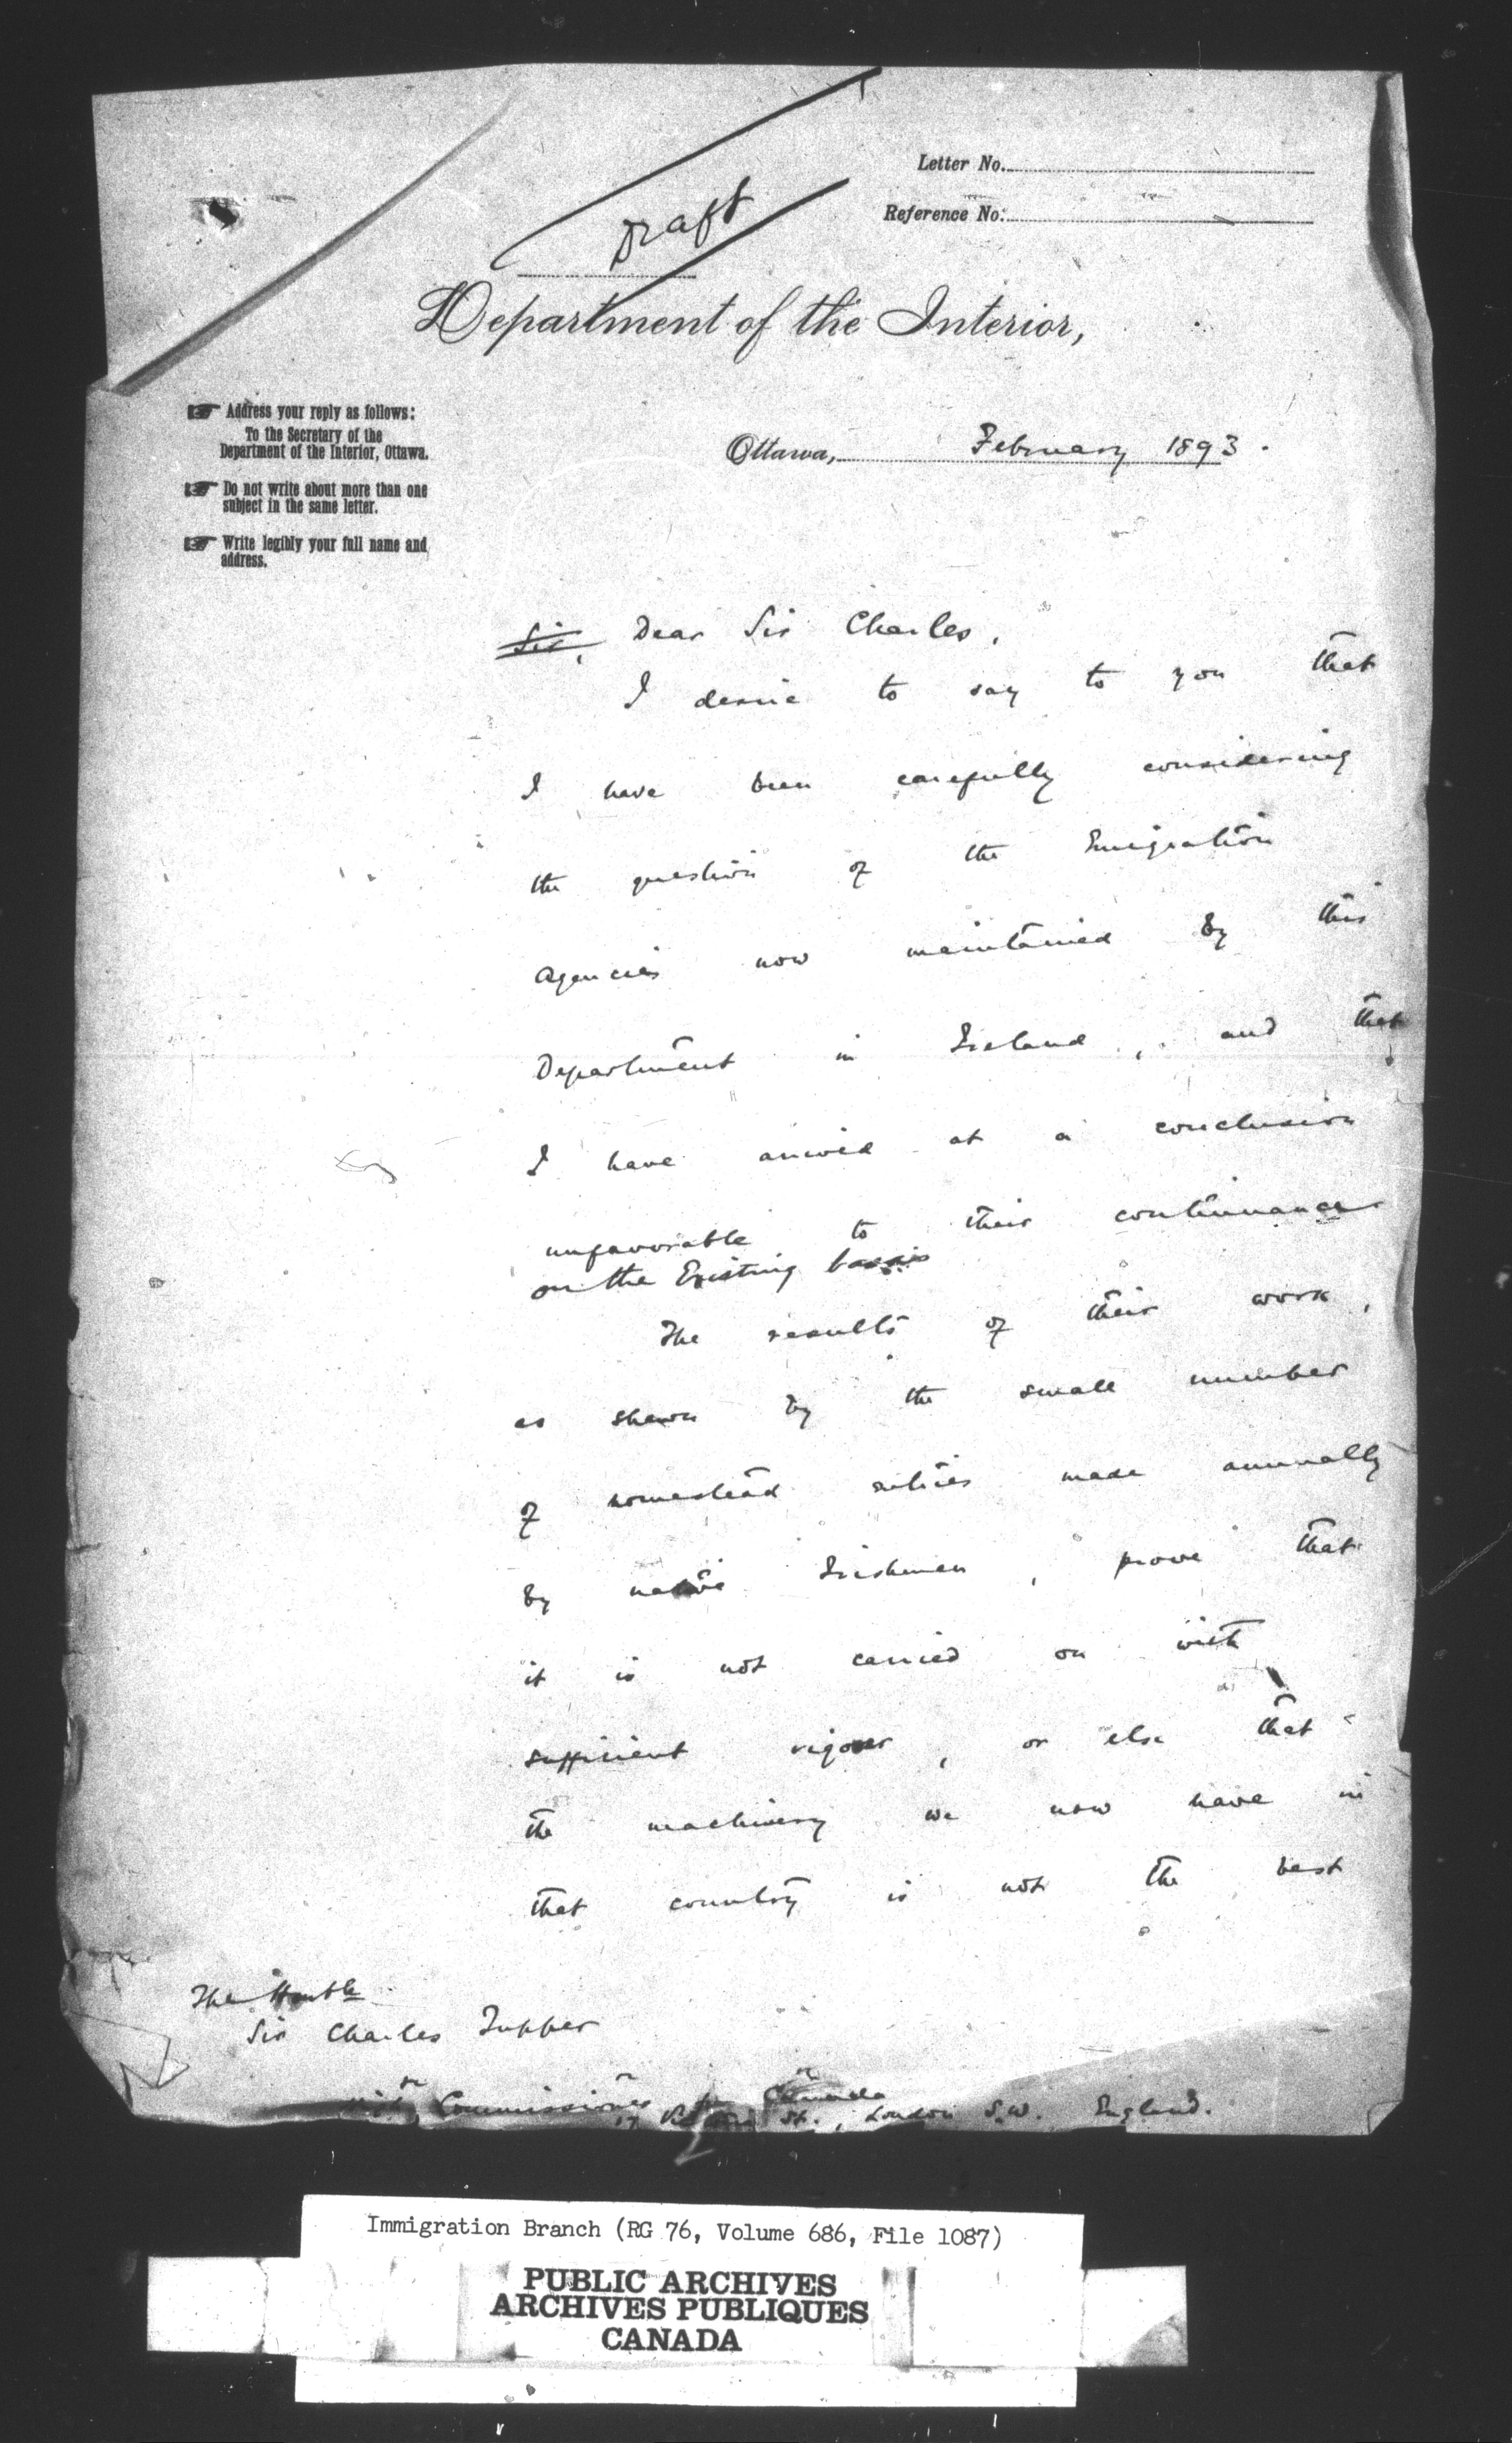 Draft
Letter No.
Reference No.
Department of the Interior,
Address your reply as follows:
To the Secretary of the
Department of the Interior, Ottawa.
Do not write about more than one
subject in the same letter.
Write legibly your full name and
address.
Ottawa, February 1893.
Sir, Dear Sir Charles,
I desire to say to you that
I have been carefully considering
the question of the Emigration
Agencies now maintained by this
Department in Ireland, and that
I have arrived at a conclusion
unfavorable to their continuance
on the Existing basis
The results of their work,
as shewn by the small number
of homestead entries made annually
by native Irishmen, prove that
it is not carried on with
sufficient vigour, or else that
the machinery we now have in
that country is not the best
The Honble
Sir Charles Tupper
High Commissioner for Canada
17 Victoria St., London S.W. England.
Immigration Branch (RG 76, Volume 686, File 1087)
PUBLIC ARCHIVES
ARCHIVES PUBLIQUES
CANADA